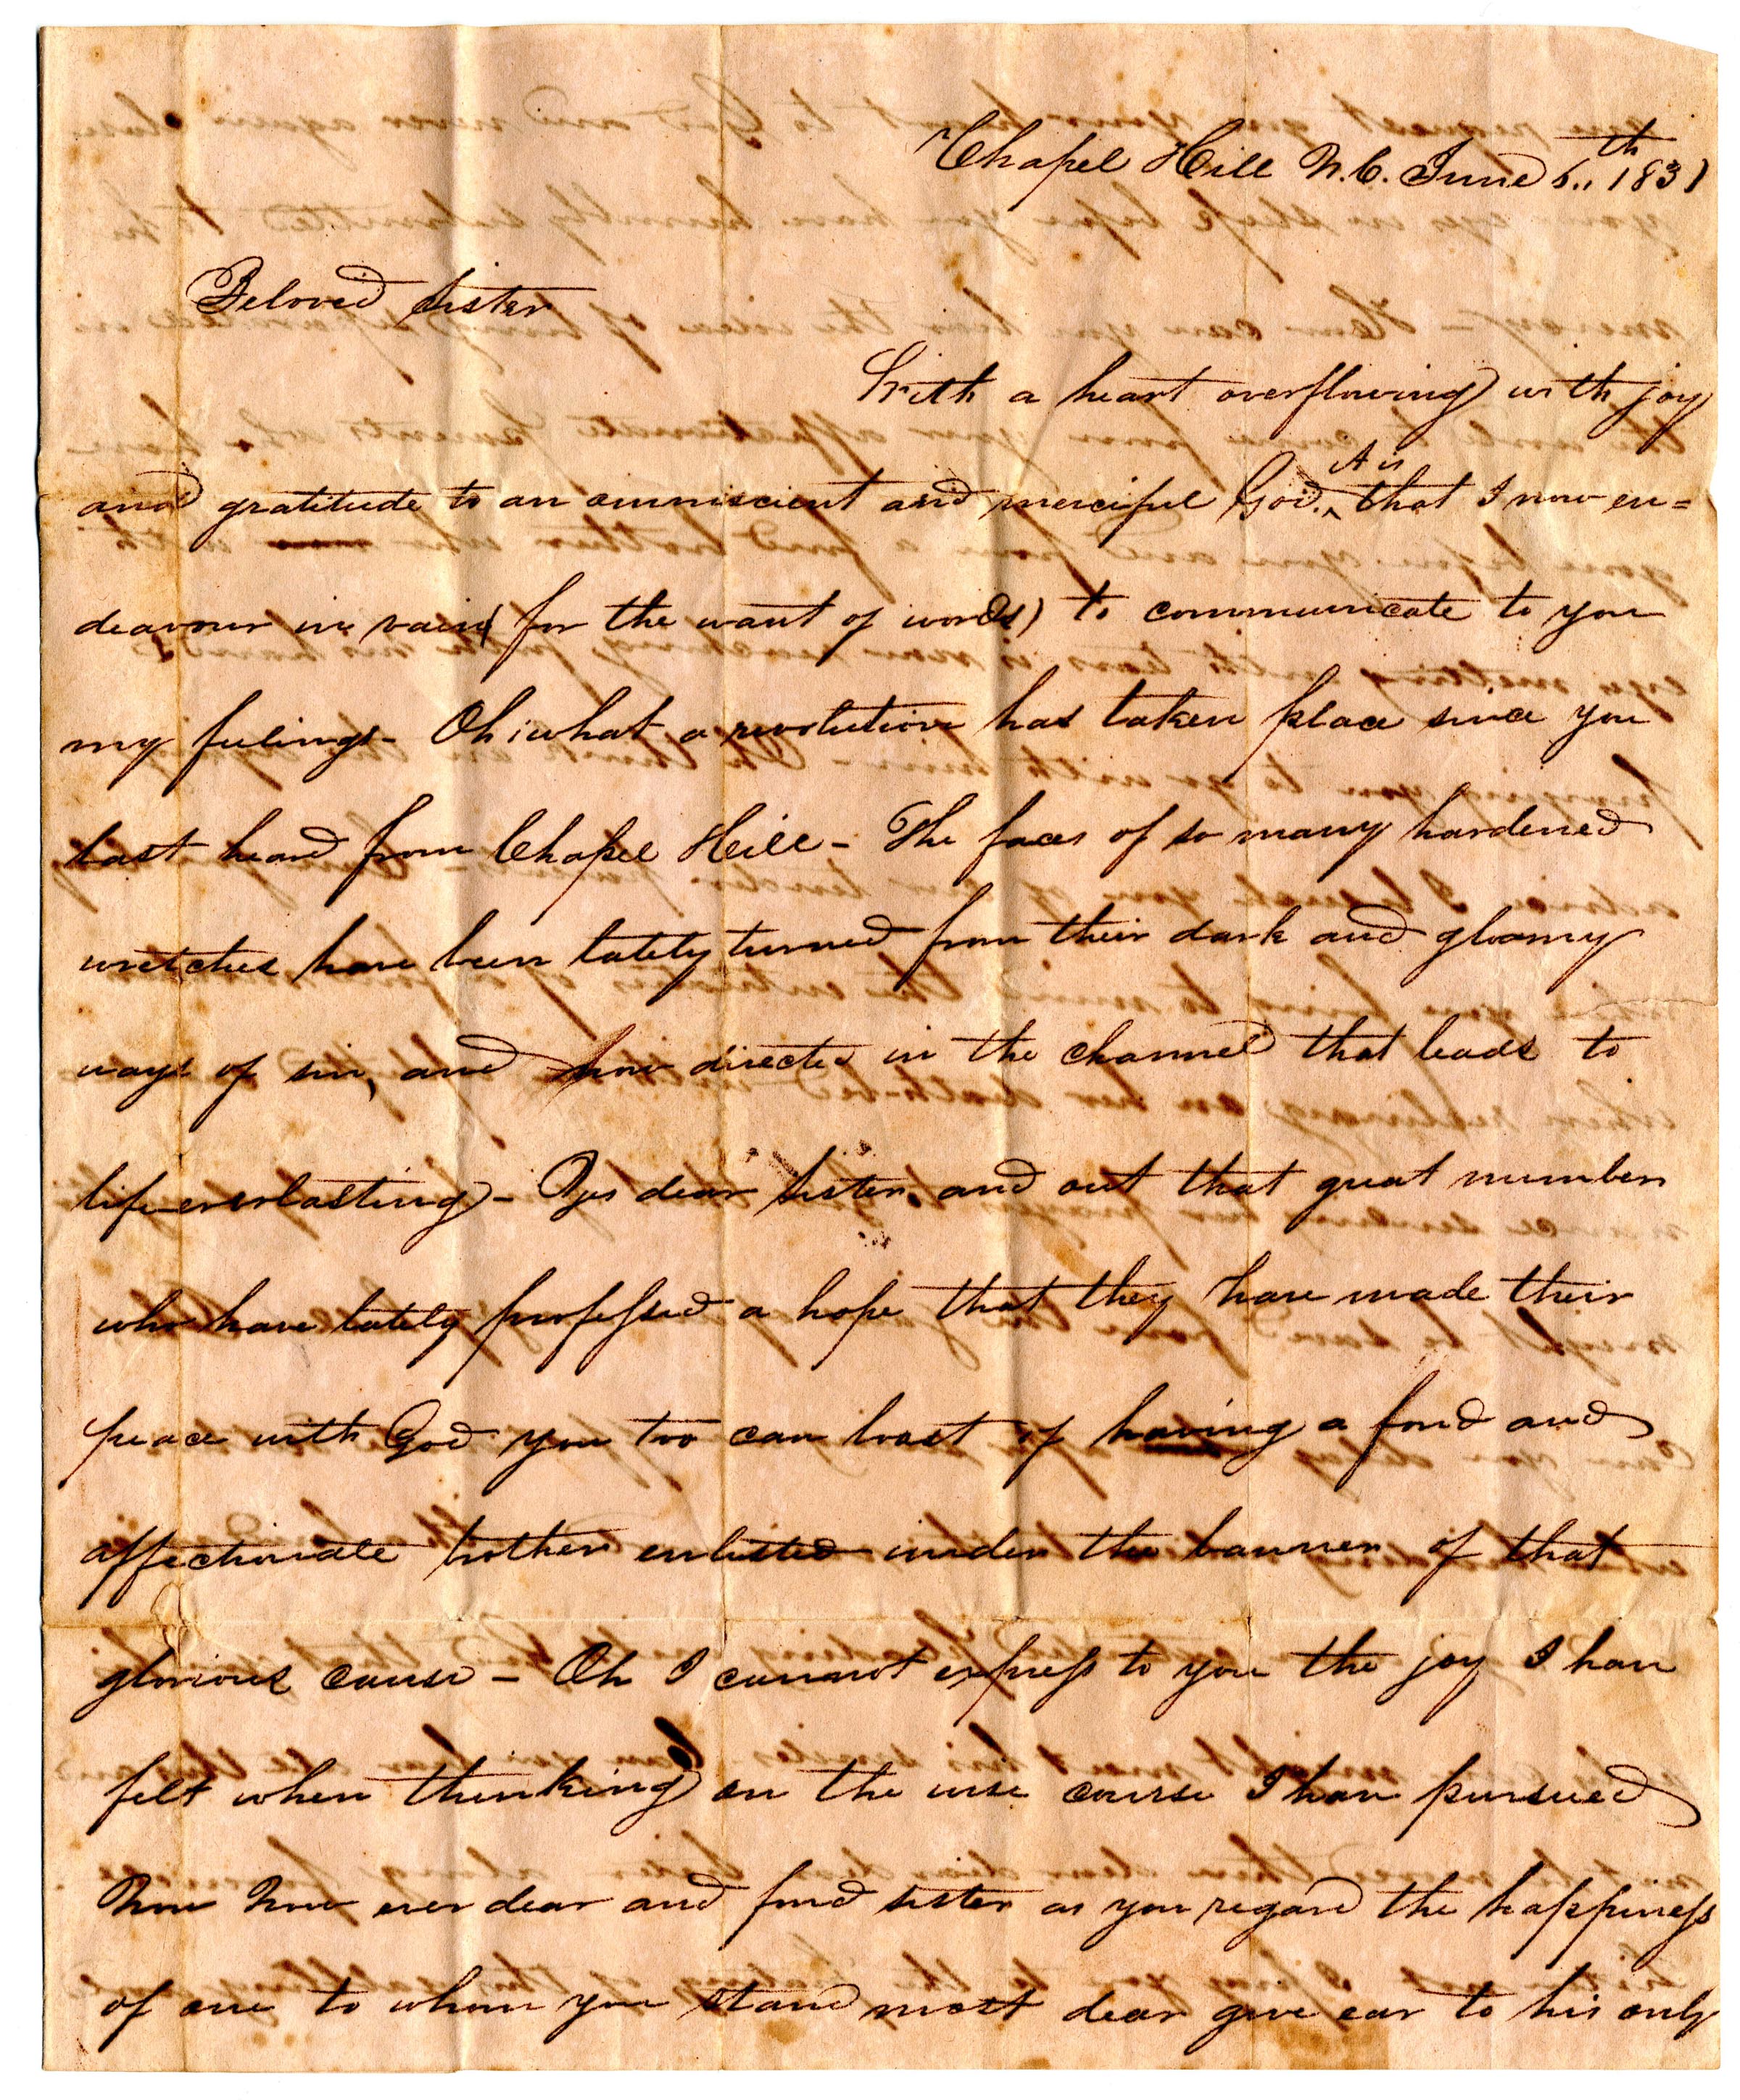 Chapel Hill N.C. June 6th 1831
Beloved sister
With a heart overflowing with joy
and gratitude to an omniscient and merciful God, it is that I now en=
deavour in vain (for the want of words) to communicate to you
my feelings - Oh! what a revolution has taken place since you
last heard from Chapel Hill - The faces of so many hardened
wretches have been lately turned from their dark and gloomy
ways of sin, and now directed in the channel that leads to
life everlasting - Yes dear sister, and out that great number
who have lately professed a hope that they have made their
peace with God you too can boast of having a fond and
affectionate brother enlisted under the banner of that
glorious cause - Oh I cannot express to you the joy I have
felt when thinking on the wise course I have pursued
Now Now ever dear and fond sister as you regard the happiness
of one to whom you stand most dear give ear to his only